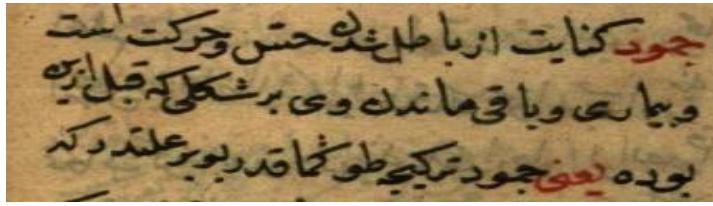 جمود کنایت از باطل شدن حس و حرکت است
و بیماری و باقی ماندن وی بر شکلی که قبل ازین
بوده یعنی جمود ترکیجه طوکماقدر بو بر علتدر که